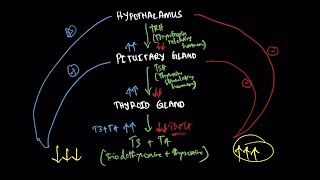 HYPOTHALAMUS
TRH
(Thyrotropin
releasing
hormone)
PITUITARY GLAND
TSH
(Thyroid
stimulating
hormone)
THYROID GLAND
T3+T4
T3+T4
T3 + T4
(Triiodothyronine + Thyroxine)